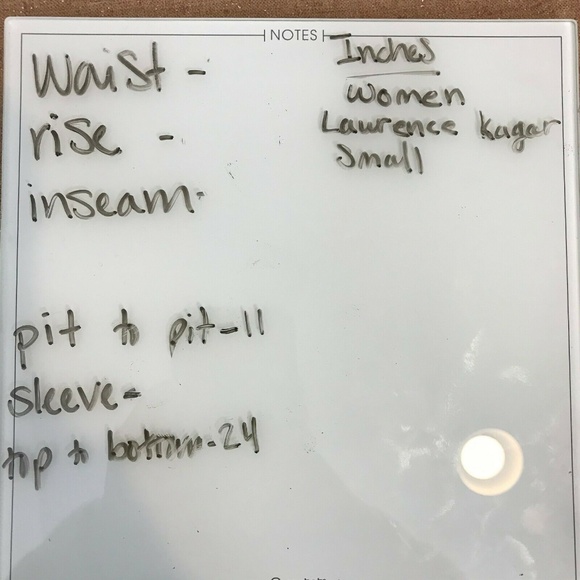 NOTES
Inches
Women
Lawrence Kagar
Small
Waist -
rise -
inseam-
pit to pit-11
sleeve-
top to bottom-24